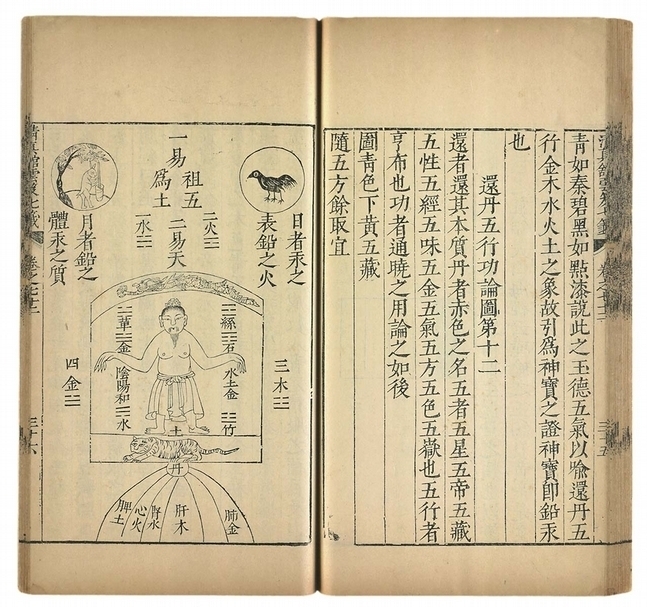 青如秦碧黑如點漆說此之玉德五氣以喻還丹五
行金木水火土之象故引爲神寶之證神寶卽鉛汞
也
還丹五行功論圖第十二
還者還其本質丹者赤色之名五者五星五帝五藏
五性五經五味五金五氣五方五色五嶽也五行者
亨布也功者通曉之用論之如後
圖青色下黃五藏
隨五方餘取宜
三十五
日者汞之
表鉛之火
一易 祖五
爲土 二易天
二火☲
一水☵
月者鉛之
體汞之質
三木☳
四金☱
水土金
竹
金
陰陽和
水
土
丹
肺金
肝木
腎水
心火
脾土
卷之七十二
三十六